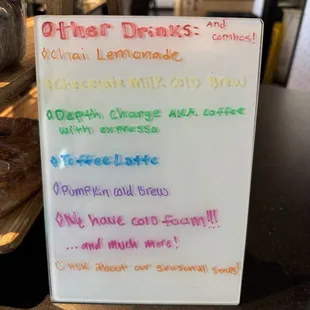 Other Drinks: And combos!
Chai Lemonade
Chocolate Milk Cold Brew
Depth Charge AKA. coffee
with espresso
Toffee Latte
Pumpkin Cold Brew
We have cold foam!!!
...and much more!
Ask about our seasonal syrups!